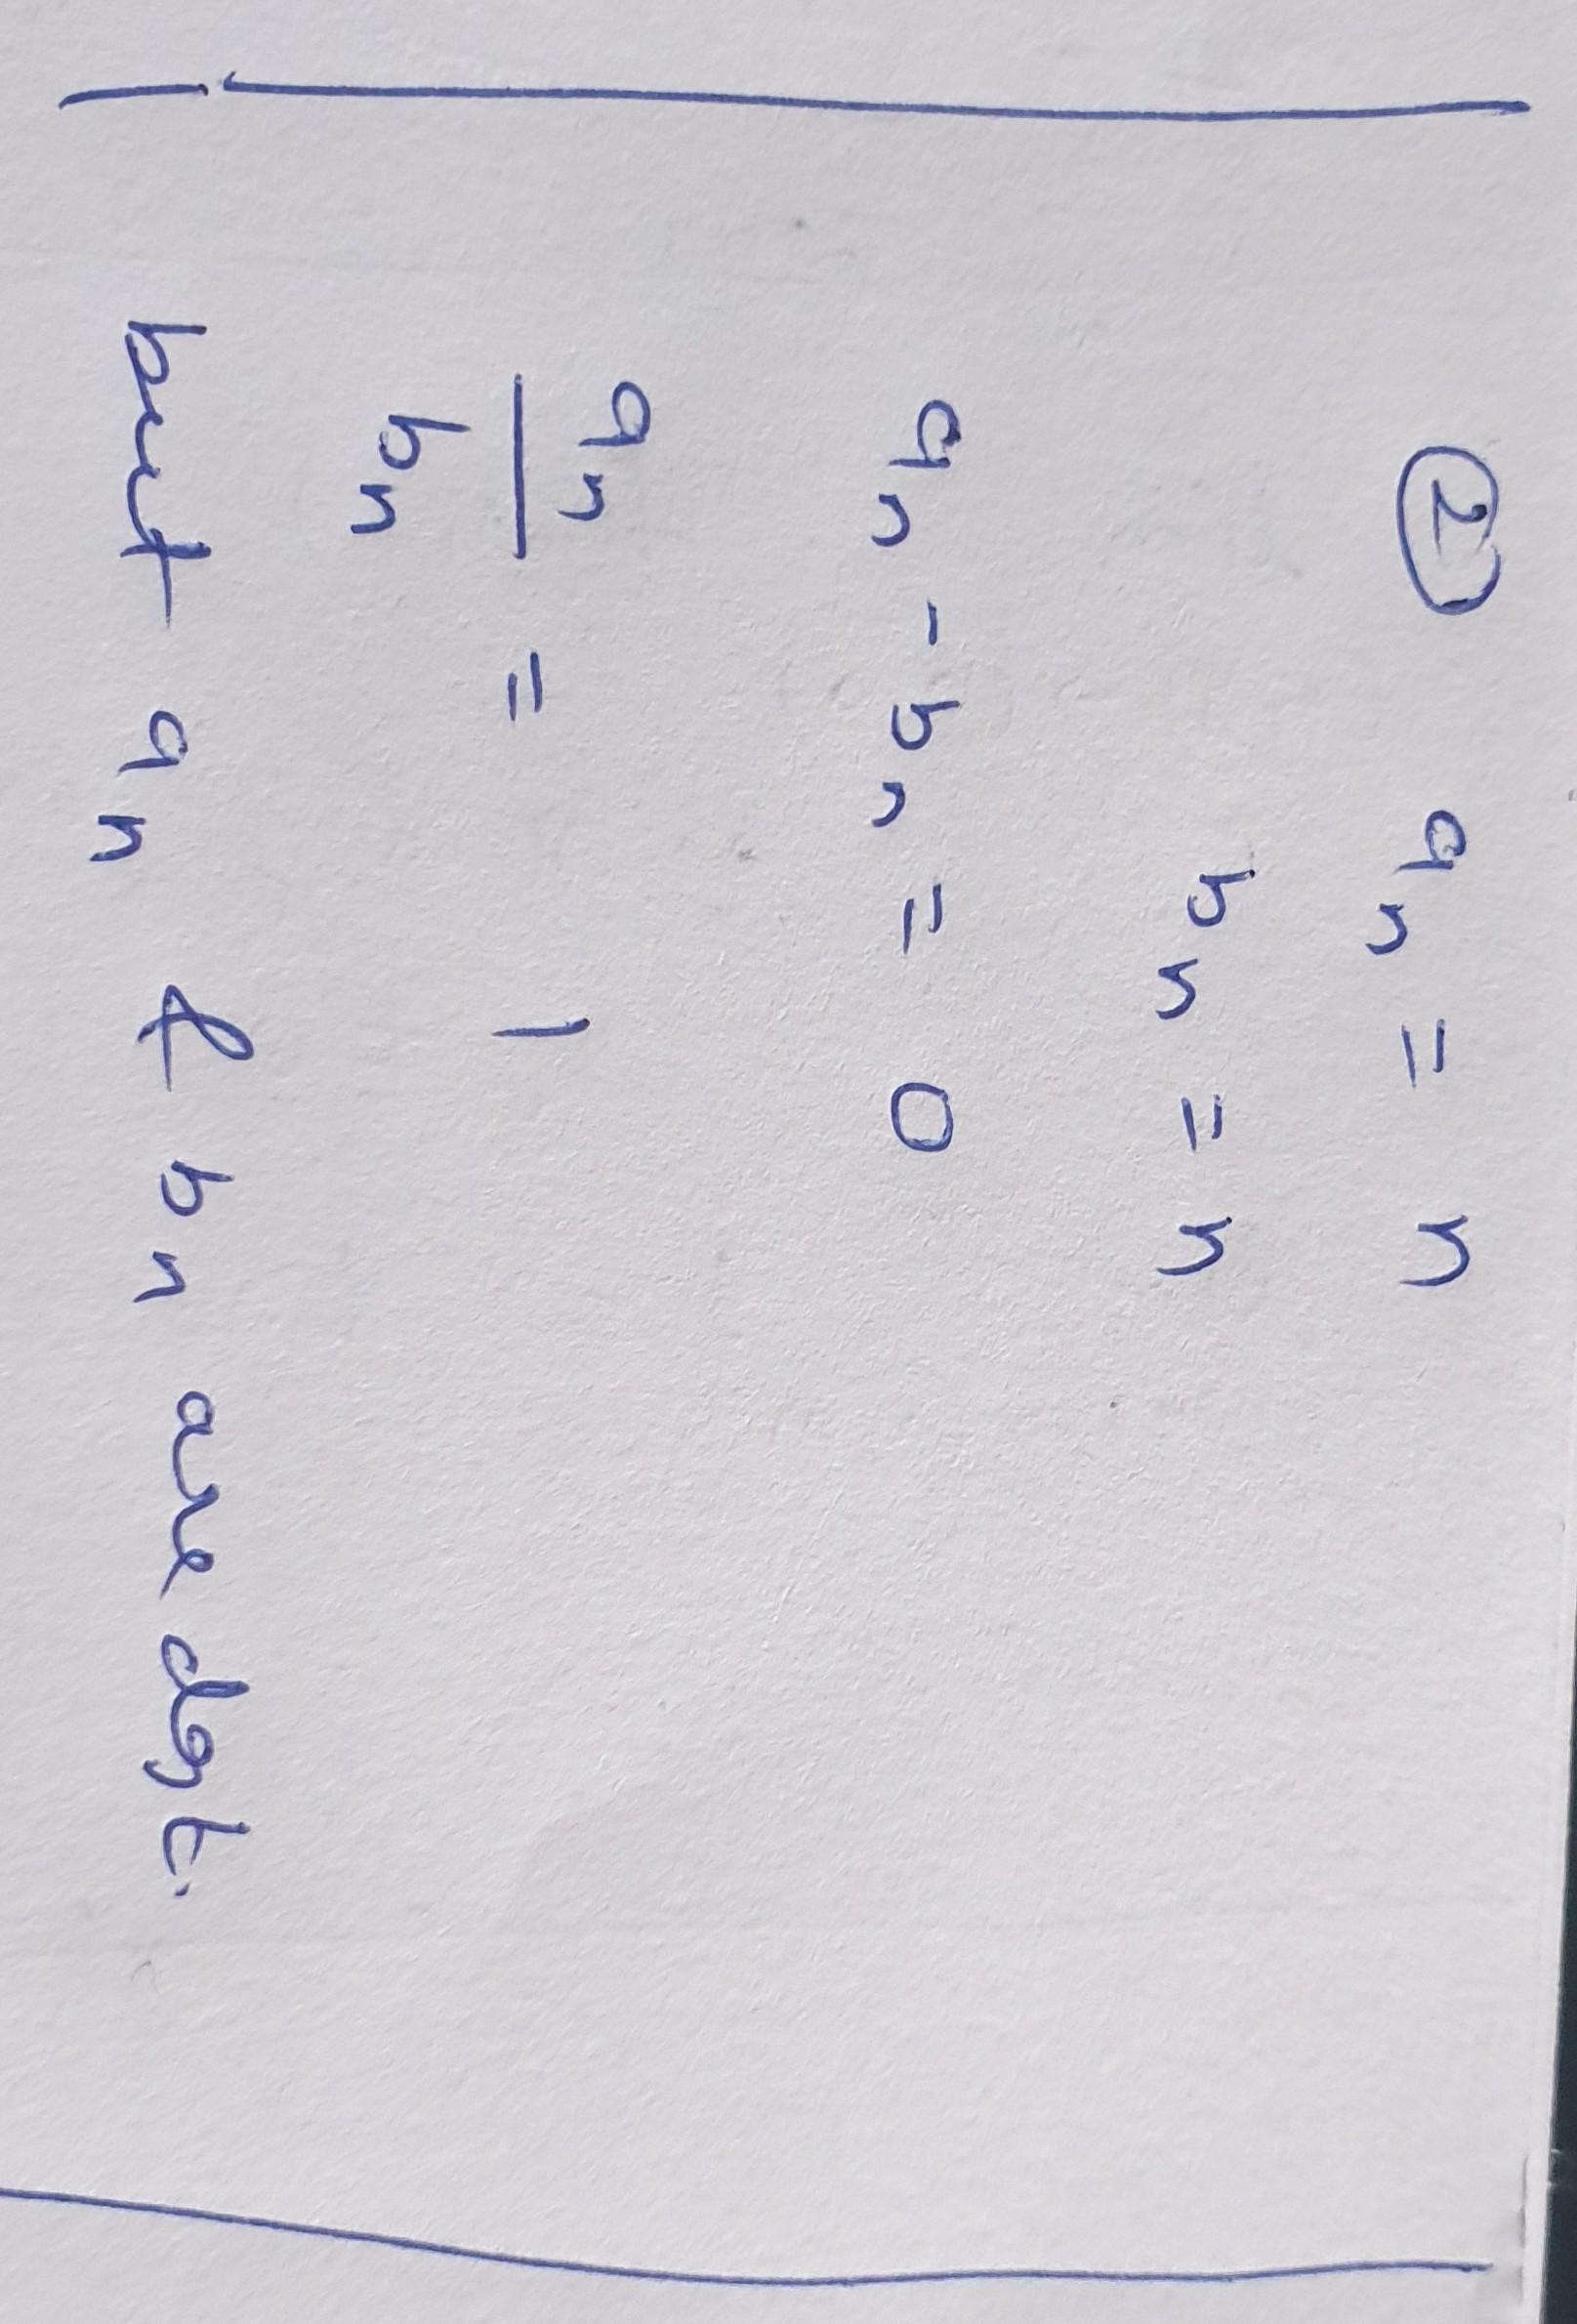 ② an = n
bn = n
an - bn = 0
an/bn = 1
but an & bn are dgt.